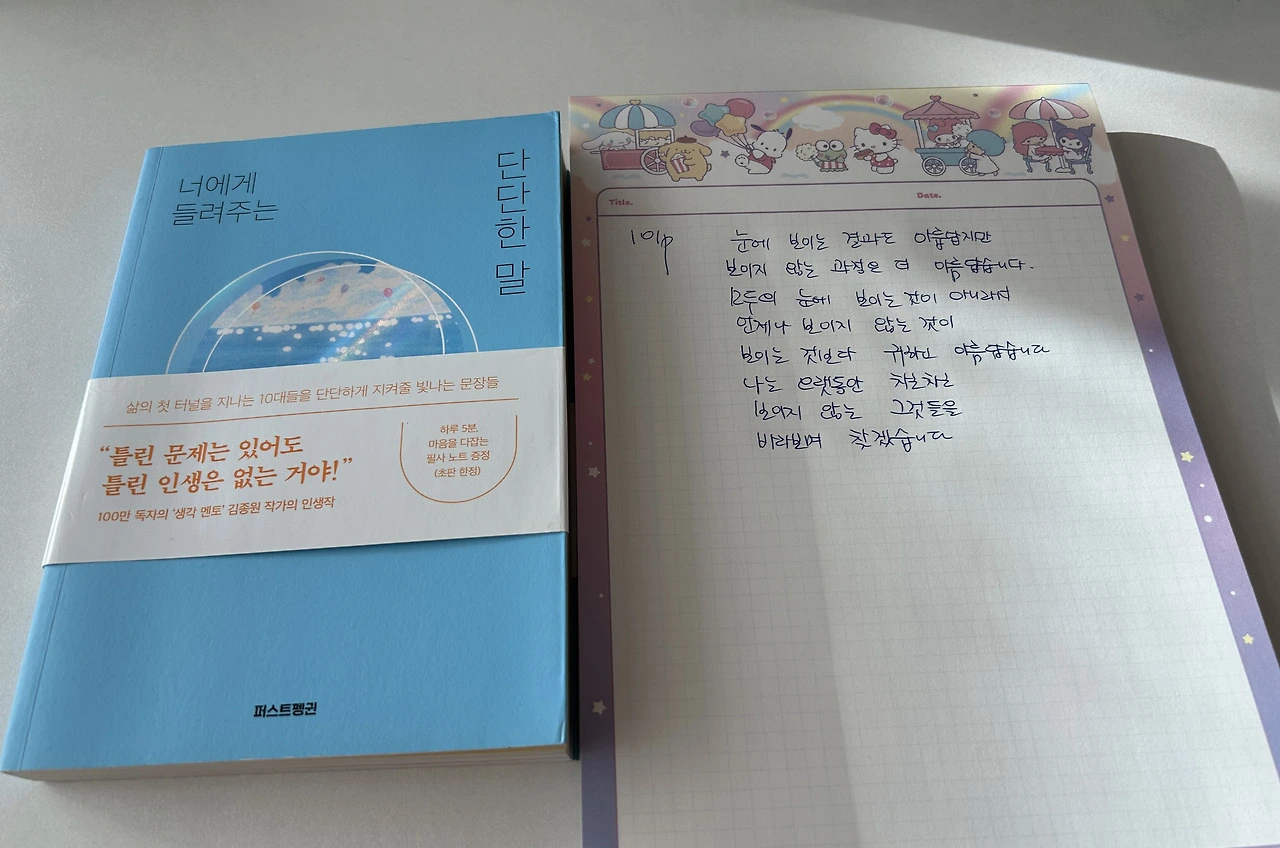 너에게
들려주는
단단한 말
삶의 첫 터널을 지나는 10대들을 단단하게 지켜줄 빛나는 문장들
“틀린 문제는 있어도
틀린 인생은 없는 거야!”
100만 독자의 ‘생각 멘토’ 김종원 작가의 인생작
하루 5분,
마음을 다잡는
필사 노트 증정
(초판 한정)
퍼스트펭귄
Title.
Date.
101p
눈에 보이는 결과도 아름답지만
보이지 않는 과정은 더 아름답습니다.
모두의 눈에 보이는 것이 아니라서
언제나 보이지 않는 것이
보이는 것보다 귀하고 아름답습니다
나는 오랫동안 차분차분
보이지 않는 그것들을
바라보며 찾겠습니다